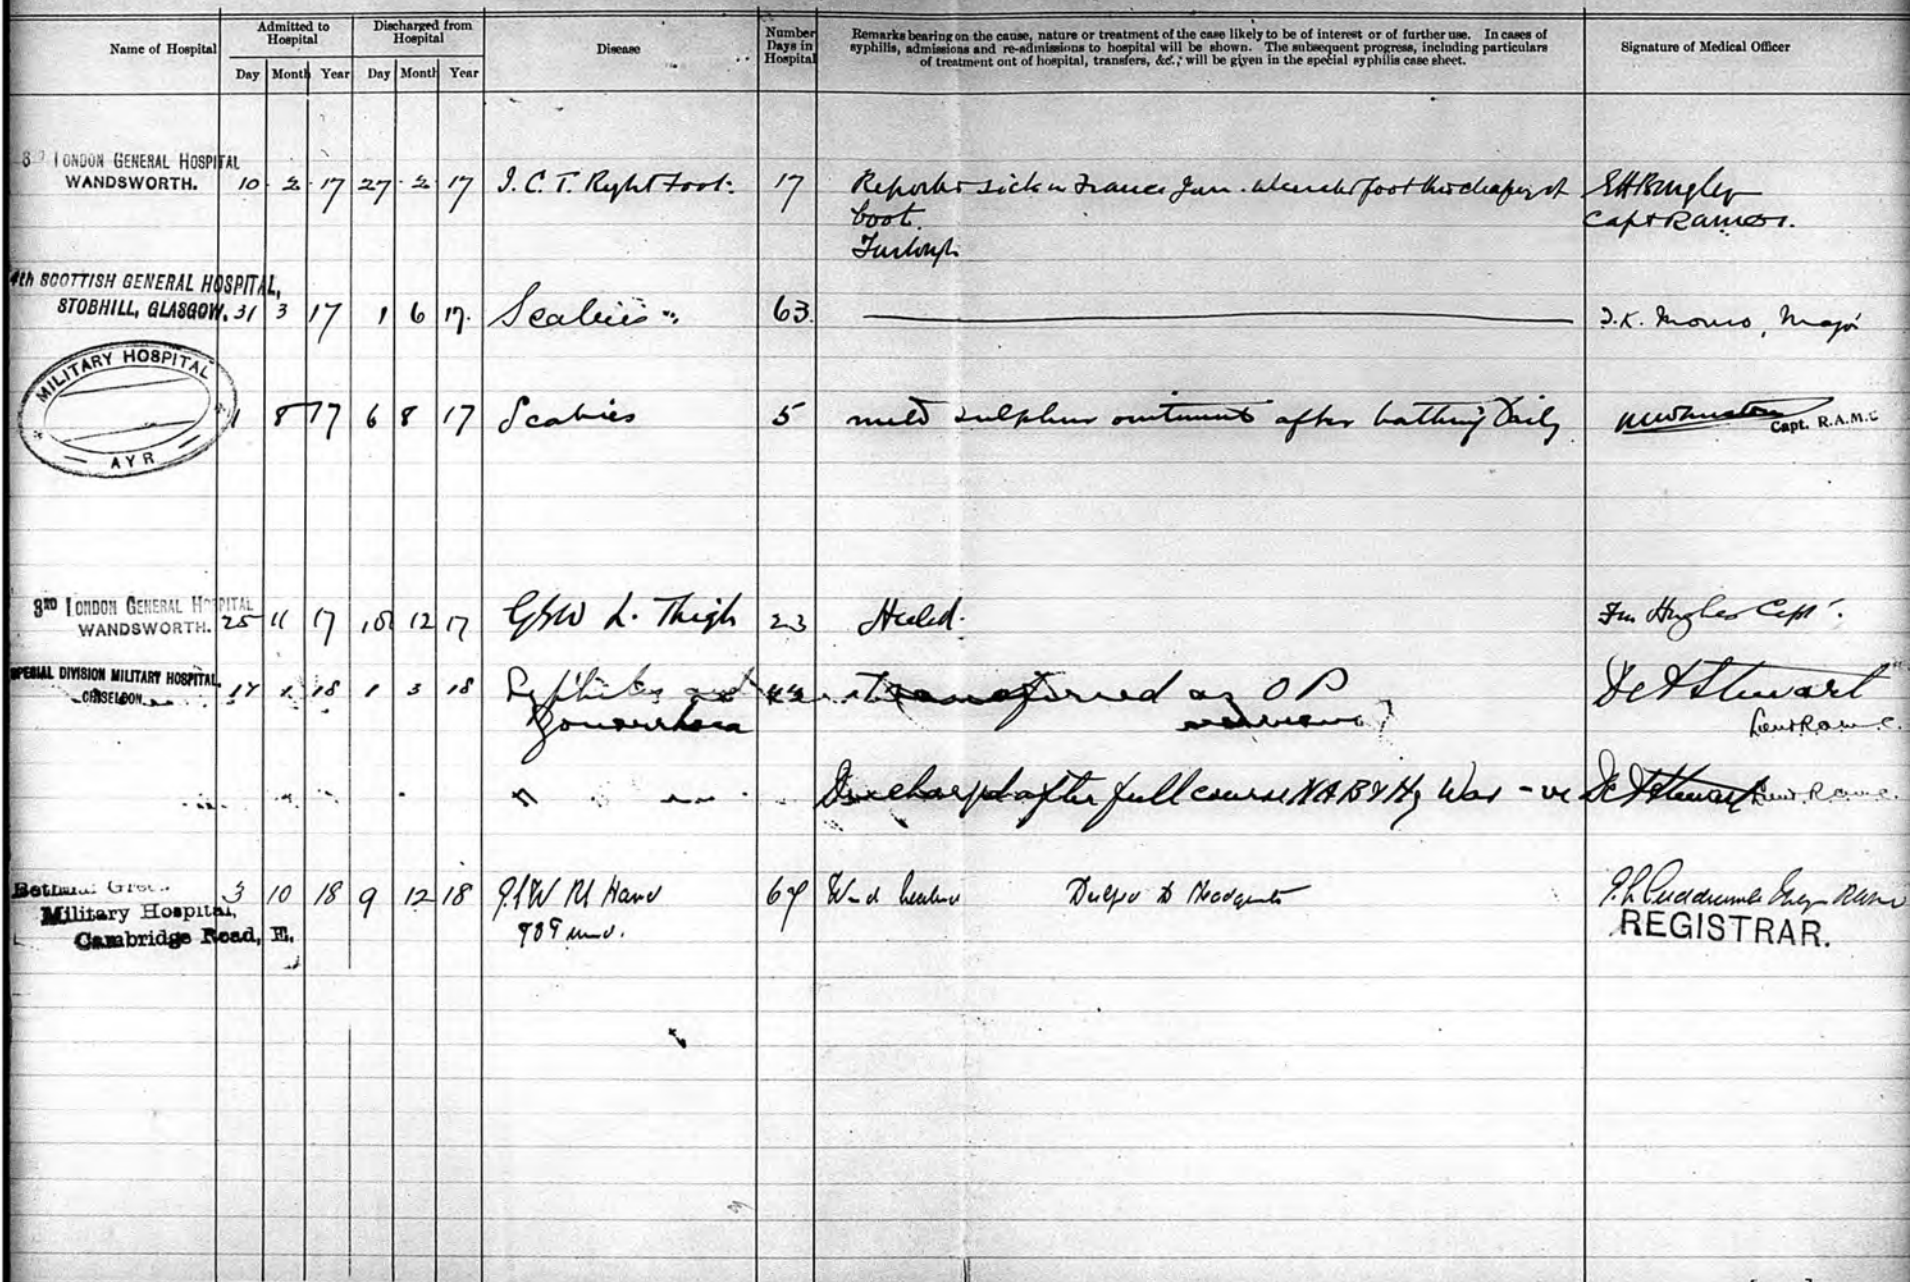 Name of Hospital
Admitted to Hospital
Discharged from Hospital
Disease
Number Days in Hospital
Remarks bearing on the cause, nature or treatment of the case likely to be of interest or of further use. In cases of
syphilis, admissions and re-admissions to hospital will be shown. The subsequent progress, including particulars
of treatment out of hospital, transfers, &c., will be given in the special syphilis case sheet.
Signature of Medical Officer
Day Month Year Day Month Year
LONDON GENERAL HOSPITAL
WANDSWORTH. 10 2 17 27 2 17 I.C.T. Right Foot. 17 sick in France Jan. foot
boot. Capt
Furlough
4th SCOTTISH GENERAL HOSPITAL,
STOBHILL, GLASGOW. 31 3 17 1 6 17. Scabies 63. Major
MILITARY HOSPITAL
AYR
1 8 17 6 8 17 Scabies 5 mild sulphur ointment after bathing daily
Capt. R.A.M.C
3RD LONDON GENERAL HOSPITAL
WANDSWORTH. 25 11 17 12 17 GSW L. Thigh 23 Healed. Hughes Capt.
SPECIAL DIVISION MILITARY HOSPITAL,
CHISELDON. 18 1 3 18 Syphilis and transferred as OP Stewart
Gonorrhoea
Discharged after full course NAB & Hg Was - ve Stewart
Bethnal Green
Military Hospital,
Cambridge Road, E.
3 10 18 9 12 18 G.S.W Rt Hand 67 healed
REGISTRAR.